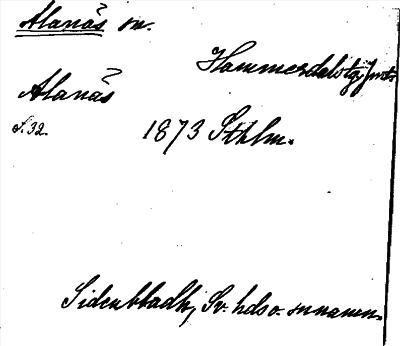 Alanäs sn.
Hammerdals tg. Jmtl.
Alanäs
S. 32.
1873 Sthlm.
Sidenbladh, Sv. hds o. snnamn.